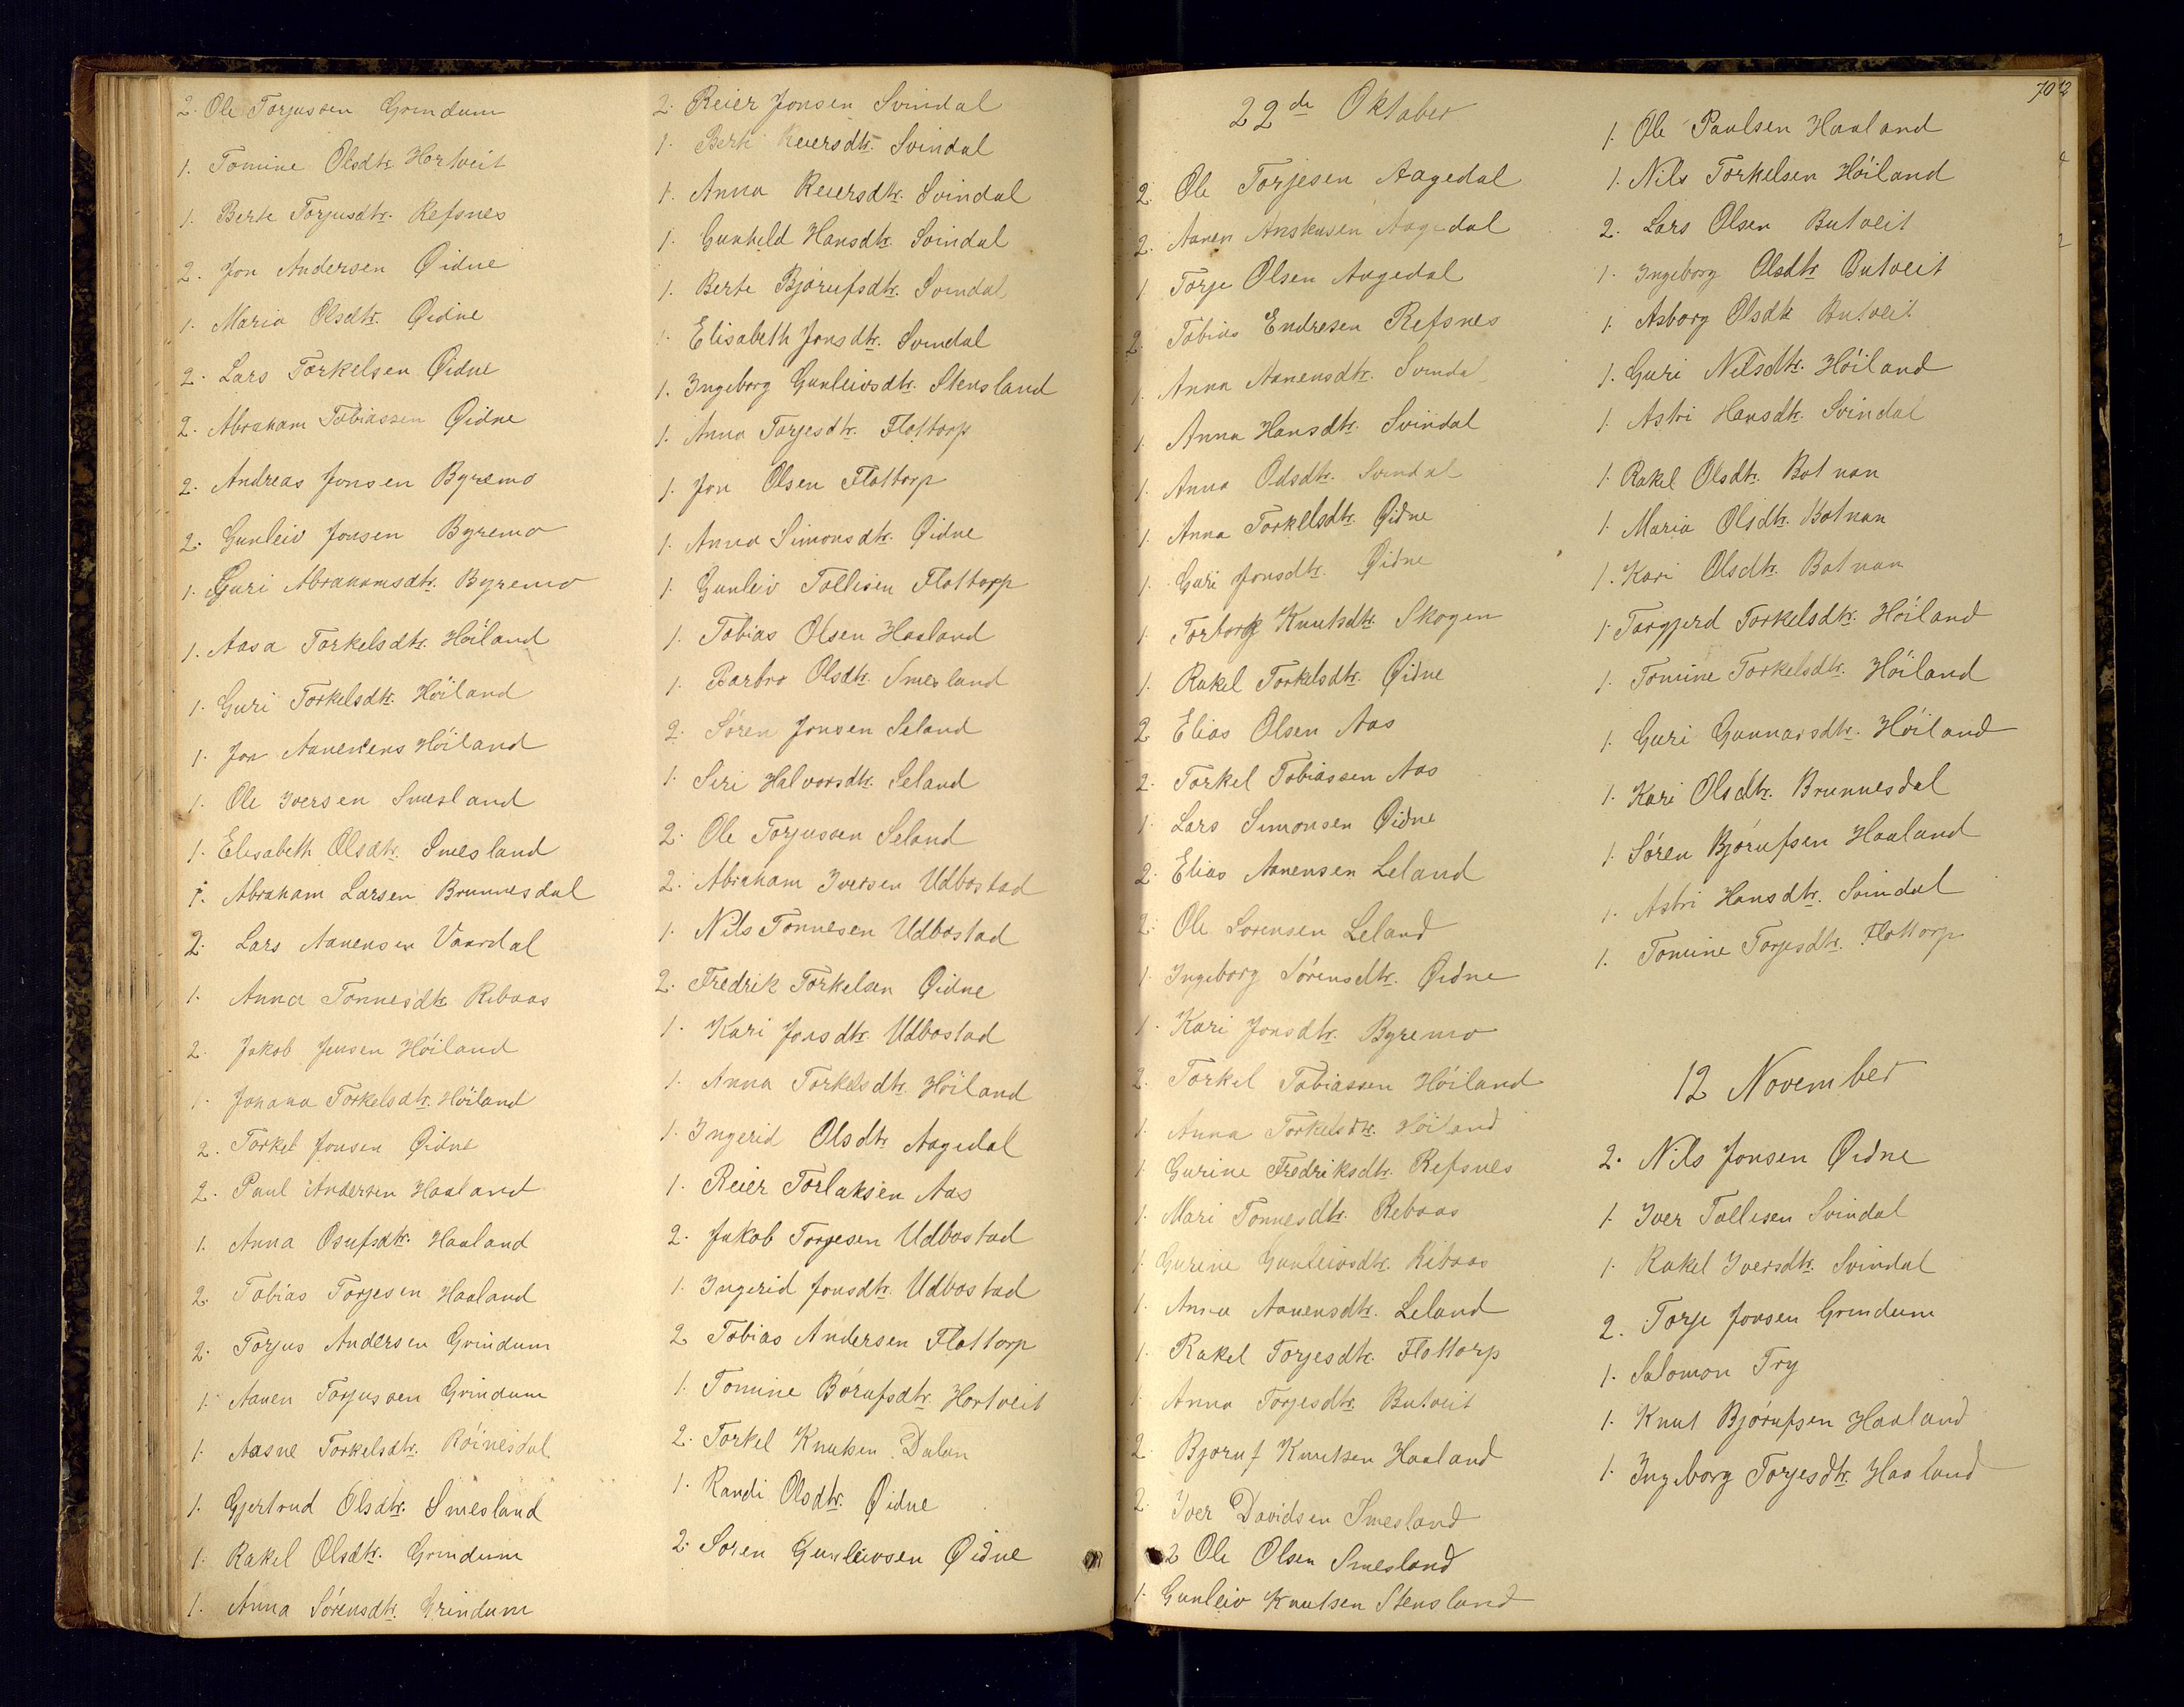 2. Ole Torjussen Grindum
1. Tomine Olsdtr. Hortveit
1. Berte Torjusdtr. Refsnes
2. Jon Andersen Øidne
1. Maria Olsdtr. Øidne
2. Lars Torkelsen Øidne
2. Abraham Tobiassen Øidne
2. Andreas Jonsen Byremo
2. Gunleiv Jonsen Byremo
1. Guri Abrahamsdtr. Byremo
1. Aasa Torkelsdtr. Höiland
1. Guri Torkelsdtr. Höiland
1. Jon Aanensens Höiland
1. Ole Iversen Smesland
1. Elisabeth Olsdtr. Smesland
1. Abraham Larsen Brunnesdal
2. Lars Aanensen Vaardal
1. Anna Tønnesdtr. Ribaas
2. Jakob Jensen Höiland
1. Johana Torkelsdtr. Höiland
2. Torkel Jonsen Øidne
2. Paul Andersen Haaland
1. Anna Osufsdtr. Haaland
2. Tobias Torjesen Haaland
2. Torjus Andersen Grindum
1. Aanen Torjussen Grindum
1. Aasne Torkelsdtr. Röinesdal
1. Gjertrud Olsdtr. Smesland
1. Rakel Olsdtr. Grindum
1. Anna Sörensdtr. Grindum
2. Reier Jonsen Svindal
1. Berte Reiersdtr. Svindal
1. Anna Reiersdtr. Svindal
1. Gunhild Hansdtr. Svindal
1. Berte Bjørufsdtr. Svindal
1. Elisabeth Jonsdtr. Svindal
1. Ingeborg Gunleivsdtr. Stensland
1. Anna Torjesdtr. Flottorp
1. Jon Olsen Flottorp
1. Anna Simonsdtr. Øidne
1. Gunleiv Tollisen Flottorp
1. Tobias Olsen Haaland
1. Barbro Olsdtr. Smesland
2. Sören Jonsen Seland
1. Siri Halvorsdtr. Seland
2. Ole Torjussen Seland
2. Abraham Iversen Udbostad
1. Nils Tønnesen Udbostad
2. Fredrik Torkelsen Øidne
1. Kari Jonsdtr. Udbostad
1. Anna Torkelsdtr. Höiland
1. Ingerid Olsdtr. Aagedal
1. Reier Torlaksen Aas
2. Jakob Torjesen Udbostad
1. Ingerid Jonsdtr. Udbostad
2 Tobias Andersen Flottorp
1. Tomine Börufsdtr. Hortveit
2. Torkel Knutsen Dalen
1. Randi Olsdtr. Øidne
2. Soren Gunleivsen Øidne
702
22de Oktober
2. Ole Torjesen Aagedal
2. Aanen Aagedal
1 Torje Olsen Aagedal
2. Tobias Endresen Refsnes
1. Anna Aanensdtr. Svindal
1. Anna Hansdtr. Svindal
1. Anna Odsdtr. Svindal
1. Anna Torkelsdtr. Øidne
1. Guri Jonsdtr. Øidne
1. Torborg Knutsdtr. Skogen
1. Rakel Torkelsdtr. Øidne
2 Elias Olsen Aas
2. Torkel Tobiassen Aas
1. Lars Simonsen Øidne
2. Elias Aanensen Leland
2. Ole Sorensen Leland
1. Ingeborg Sörensdtr. Øidne
1. Kari Jonsdtr. Byremo
2. Torkel Tobiassen Höiland
1. Anna Torkelsdtr. Höiland
1. Gurine Fredriksdtr. Refsnes
1. Mari Tonnesdtr. Rebaas
1. Gurine Gunleivsdtr. Ribaas
1. Anna Aanensdtr. Leland
1. Rakel Torjesdtr. Flottorp
1. Anna Torjesdtr. Butveit
2. Bjoruf Knutsen Haaland
2. Iver Davidsen Smesland
2 Ole Olsen Smesland
1. Gunleiv Knutsen Stensland
1. Ole Paulsen Haaland
1. Nils Torkelsen Höiland
2. Lars Olsen Butveit
1. Ingeborg Olsdtr Butveit
1. Asborg Olsdtr Butveit
1. Guri Nilsdtr. Höiland
1. Astri Hansdtr. Svindal
1. Rakel Olsdtr. Botnan
1. Maria Olsdtr. Botnan
1. Kari Olsdtr. Botnan
1. Torgjerd Torkelsdtr. Höiland
1. Tomine Torkelsdtr. Höiland
1. Guri Gunnarsdtr. Höiland
1. Kari Olsdtr. Brunnesdal
1. Sören Bjørufsen Haaland
1. Astri Hansdtr. Svindal
1. Tomine Torjesdtr. Flottorp
12 November
2. Nils Jonsen Øidne
1. Iver Tollisen Svindal
1. Rakel Iversdtr. Svindal
2. Torje Jonsen Grindum
1. Salomon Try
1. Knut Bjørufsen Haaland
1. Ingeborg Torjesdtr. Haaland